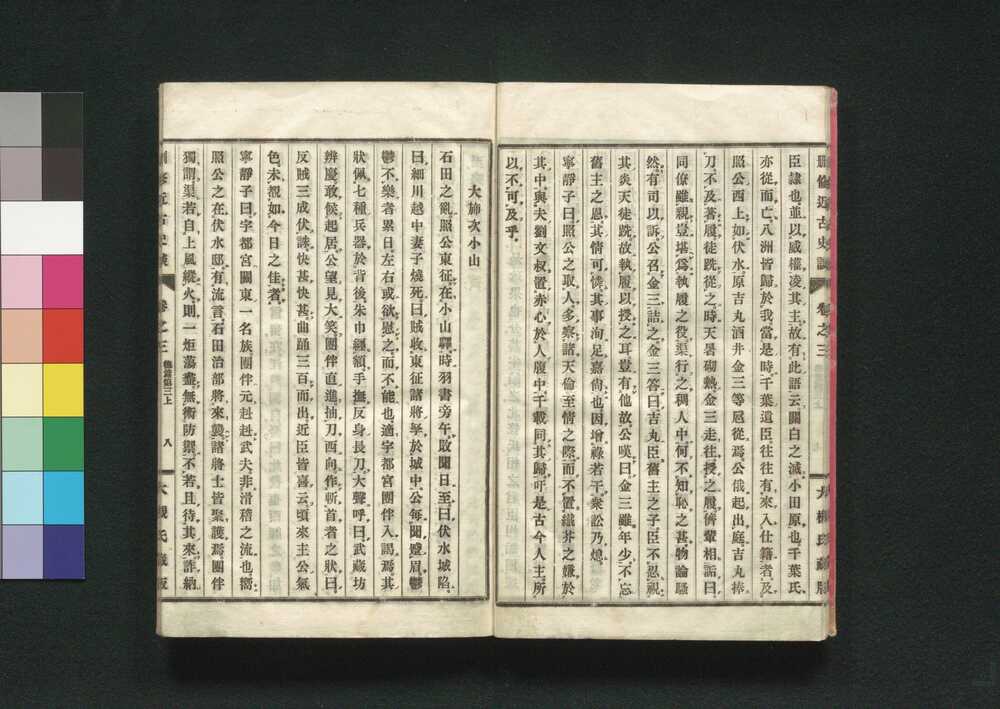 刪修近古史談
卷之三
大槻氏藏版
臣隷也並以威權凌其主故有此語云關白之滅小田原也千葉氏
亦從而亡八洲皆歸於我當是時千葉遺臣往往有來入仕籍者及
照公西上如伏水原吉丸酒井金三等扈從焉公俄起出庭吉丸捧
刀不及著履徒跣從之時天暑砌熱金三走往授之履儕輩相詬曰
同僚雖親豈堪爲執履之役渠行之稠人中何不知恥之甚物論騷
然有司以訴公召金三詰之金三答曰吉丸臣舊主之子臣不忍視
其炎天徒跣故執履以授之耳豈有他故公嘆曰金三雖年少不忘
舊主之恩其情可憐其事洵足嘉尚也因增祿若干衆訟乃熄
寧靜子曰照公之取人多察諸天倫至情之際而不置纖芥之嫌於
其中與夫劉文叔置赤心於人腹中千載同其歸吁是古今人主所
以不可及乎
大旆次小山
石田之亂照公東征在小山驛時羽書旁午敗聞日至曰伏水城陷
曰細川越中妻子燒死曰賊收東征諸將孥於城中公每聞蹙眉鬱
鬱不樂者累日左右或欲慰之而不能也適宇都宮團伴入謁焉其
狀佩七種兵器於背後朱巾纒額手撫反身長刀大聲呼曰武藏坊
辨慶敢候起居公望見大笑團伴直進抽刀西向作斬首者之狀曰
反賊三成伏誅快甚快甚曲踊三百而出近臣皆喜云頃來主公氣
色未覩如今日之佳者
寧靜子曰宇都宮關東一名族團伴元赳赳武夫非滑稽之流也嚮
照公之在伏水邸有流言石田治部將來襲諸將士皆聚護焉團伴
獨謂渠若自上風縱火則一炬蕩盡無術防禦不若且待其來詐納
刪修近古史談
卷之三
德篇第三上
八
大槻氏藏版